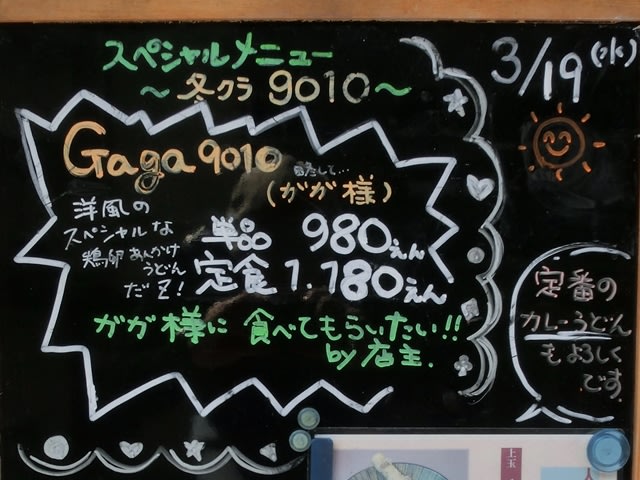 スペシャルメニュー
～冬クラ 9010～
3/19(水)
Gaga9010
(がが様)
洋風の
スペシャルな
鶏卵あんかけ
うどん
だZ!
単品 980えん
定食 1.180えん
がが様に 食べてもらいたい!!
by店主.
定番の
カレーうどん
もよろしく
です.
上玉